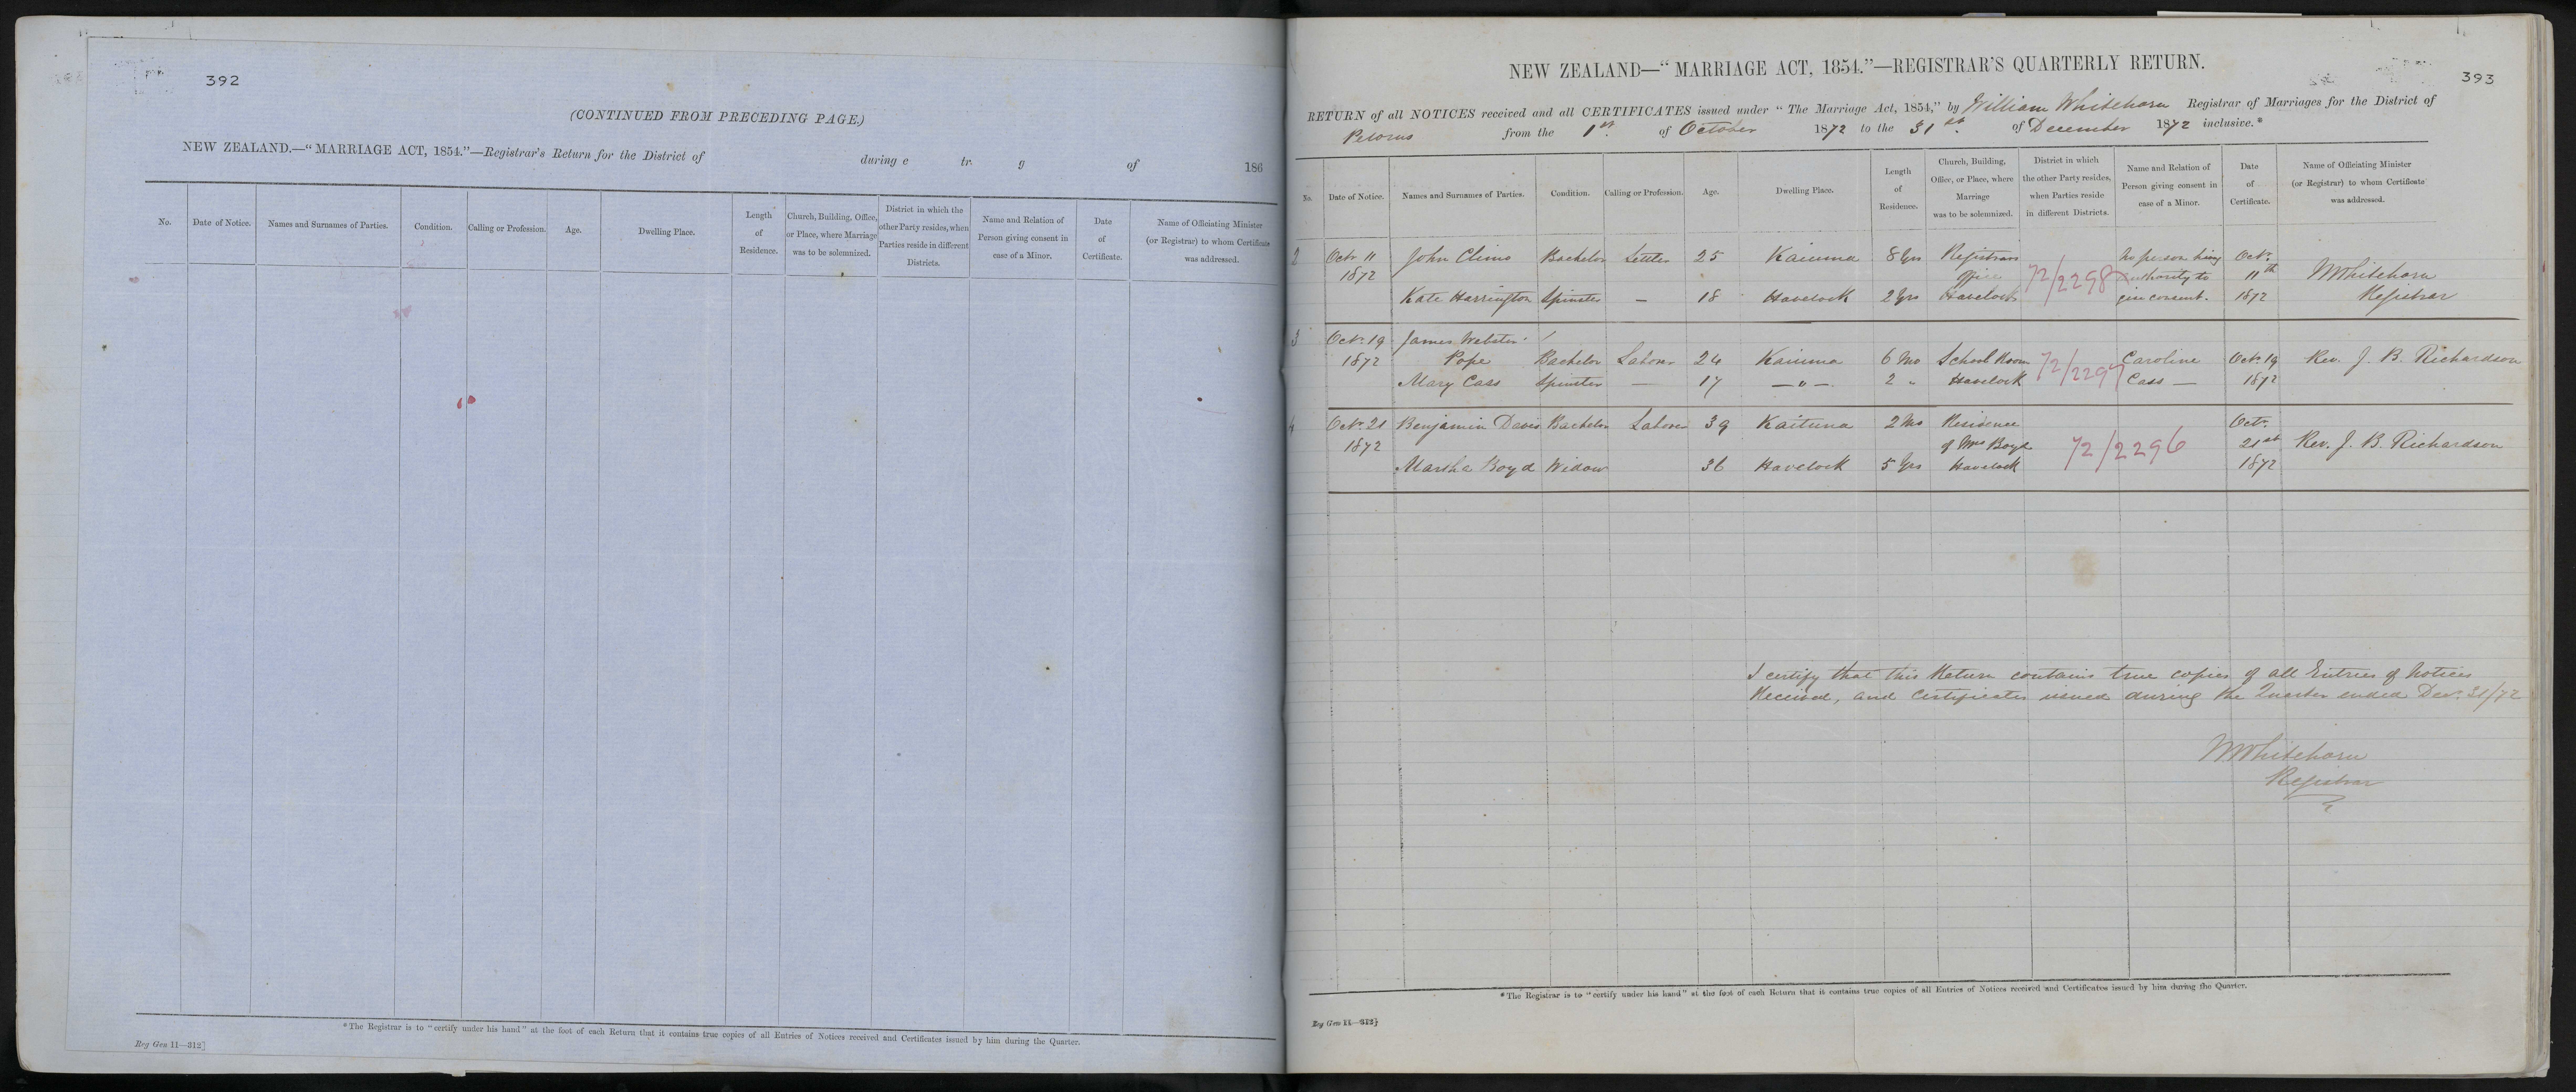 392
(CONTINUED FROM PRECEDING PAGE.)
NEW ZEALAND.—“MARRIAGE ACT, 1854.”—Registrar's Return for the District of during e tr. g of 186
No. Date of Notice. Names and Surnames of Parties. Condition. Calling or Profession. Age. Dwelling Place. Length of Residence. Church, Building, Office, or Place, where Marriage was to be solemnized. District in which the other Party resides, when Parties reside in different Districts. Name and Relation of Person giving consent in case of a Minor. Date of Certificate. Name of Officiating Minister (or Registrar) to whom Certificate was addressed.
*The Registrar is to “certify under his hand” at the foot of each Return that it contains true copies of all Entries of Notices received and Certificates issued by him during the Quarter.
Reg Gen 11—312]
393
NEW ZEALAND—“MARRIAGE ACT, 1854.”—REGISTRAR'S QUARTERLY RETURN.
RETURN of all NOTICES received and all CERTIFICATES issued under “The Marriage Act, 1854,” by William Whitehorn Registrar of Marriages for the District of
Pelorus from the 1st of October 1872 to the 31st of December 1872 inclusive.*
No. Date of Notice. Names and Surnames of Parties. Condition. Calling or Profession. Age. Dwelling Place. Length of Residence. Church, Building, Office, or Place, where Marriage was to be solemnized. District in which the other Party resides, when Parties reside in different Districts. Name and Relation of Person giving consent in case of a Minor. Date of Certificate. Name of Officiating Minister (or Registrar) to whom Certificate was addressed.
2 Octr 11 John Climo Bachelor Settler 25 Kaiuma 8 Yrs Registrars No person having Octr.
1872 Office 72/2298 authority to 11th WWhitehorn
Kate Harrington Spinster — 18 Havelock 2 Yrs Havelock give consent. 1872 Registrar
3 Octr. 19 James Webster
1872 Pope Bachelor Labour 24 Kaiuma 6 Mo School Room 72/2297 Caroline Octr. 19 Rev. J. B. Richardson
Mary Cass Spinster — 17 — " — 2 " Havelock Cass — 1872
4 Octr. 21 Benjamin Davis Bachelor Labour 39 Kaituna 2 Mo Residence Octr.
1872 of Mrs Boyd 72/2296 21st Rev. J. B. Richardson
Marsha Boyd Widow 36 Havelock 5 Yrs Havelock 1872
I certify that this Return contains true copies of all Entries of Notices
Received, and Certificates issued during the Quarter ended Decr. 31/72
WWhitehorn
Registrar
*The Registrar is to “certify under his hand” at the foot of each Return that it contains true copies of all Entries of Notices received and Certificates issued by him during the Quarter.
Reg Gen 11—312]